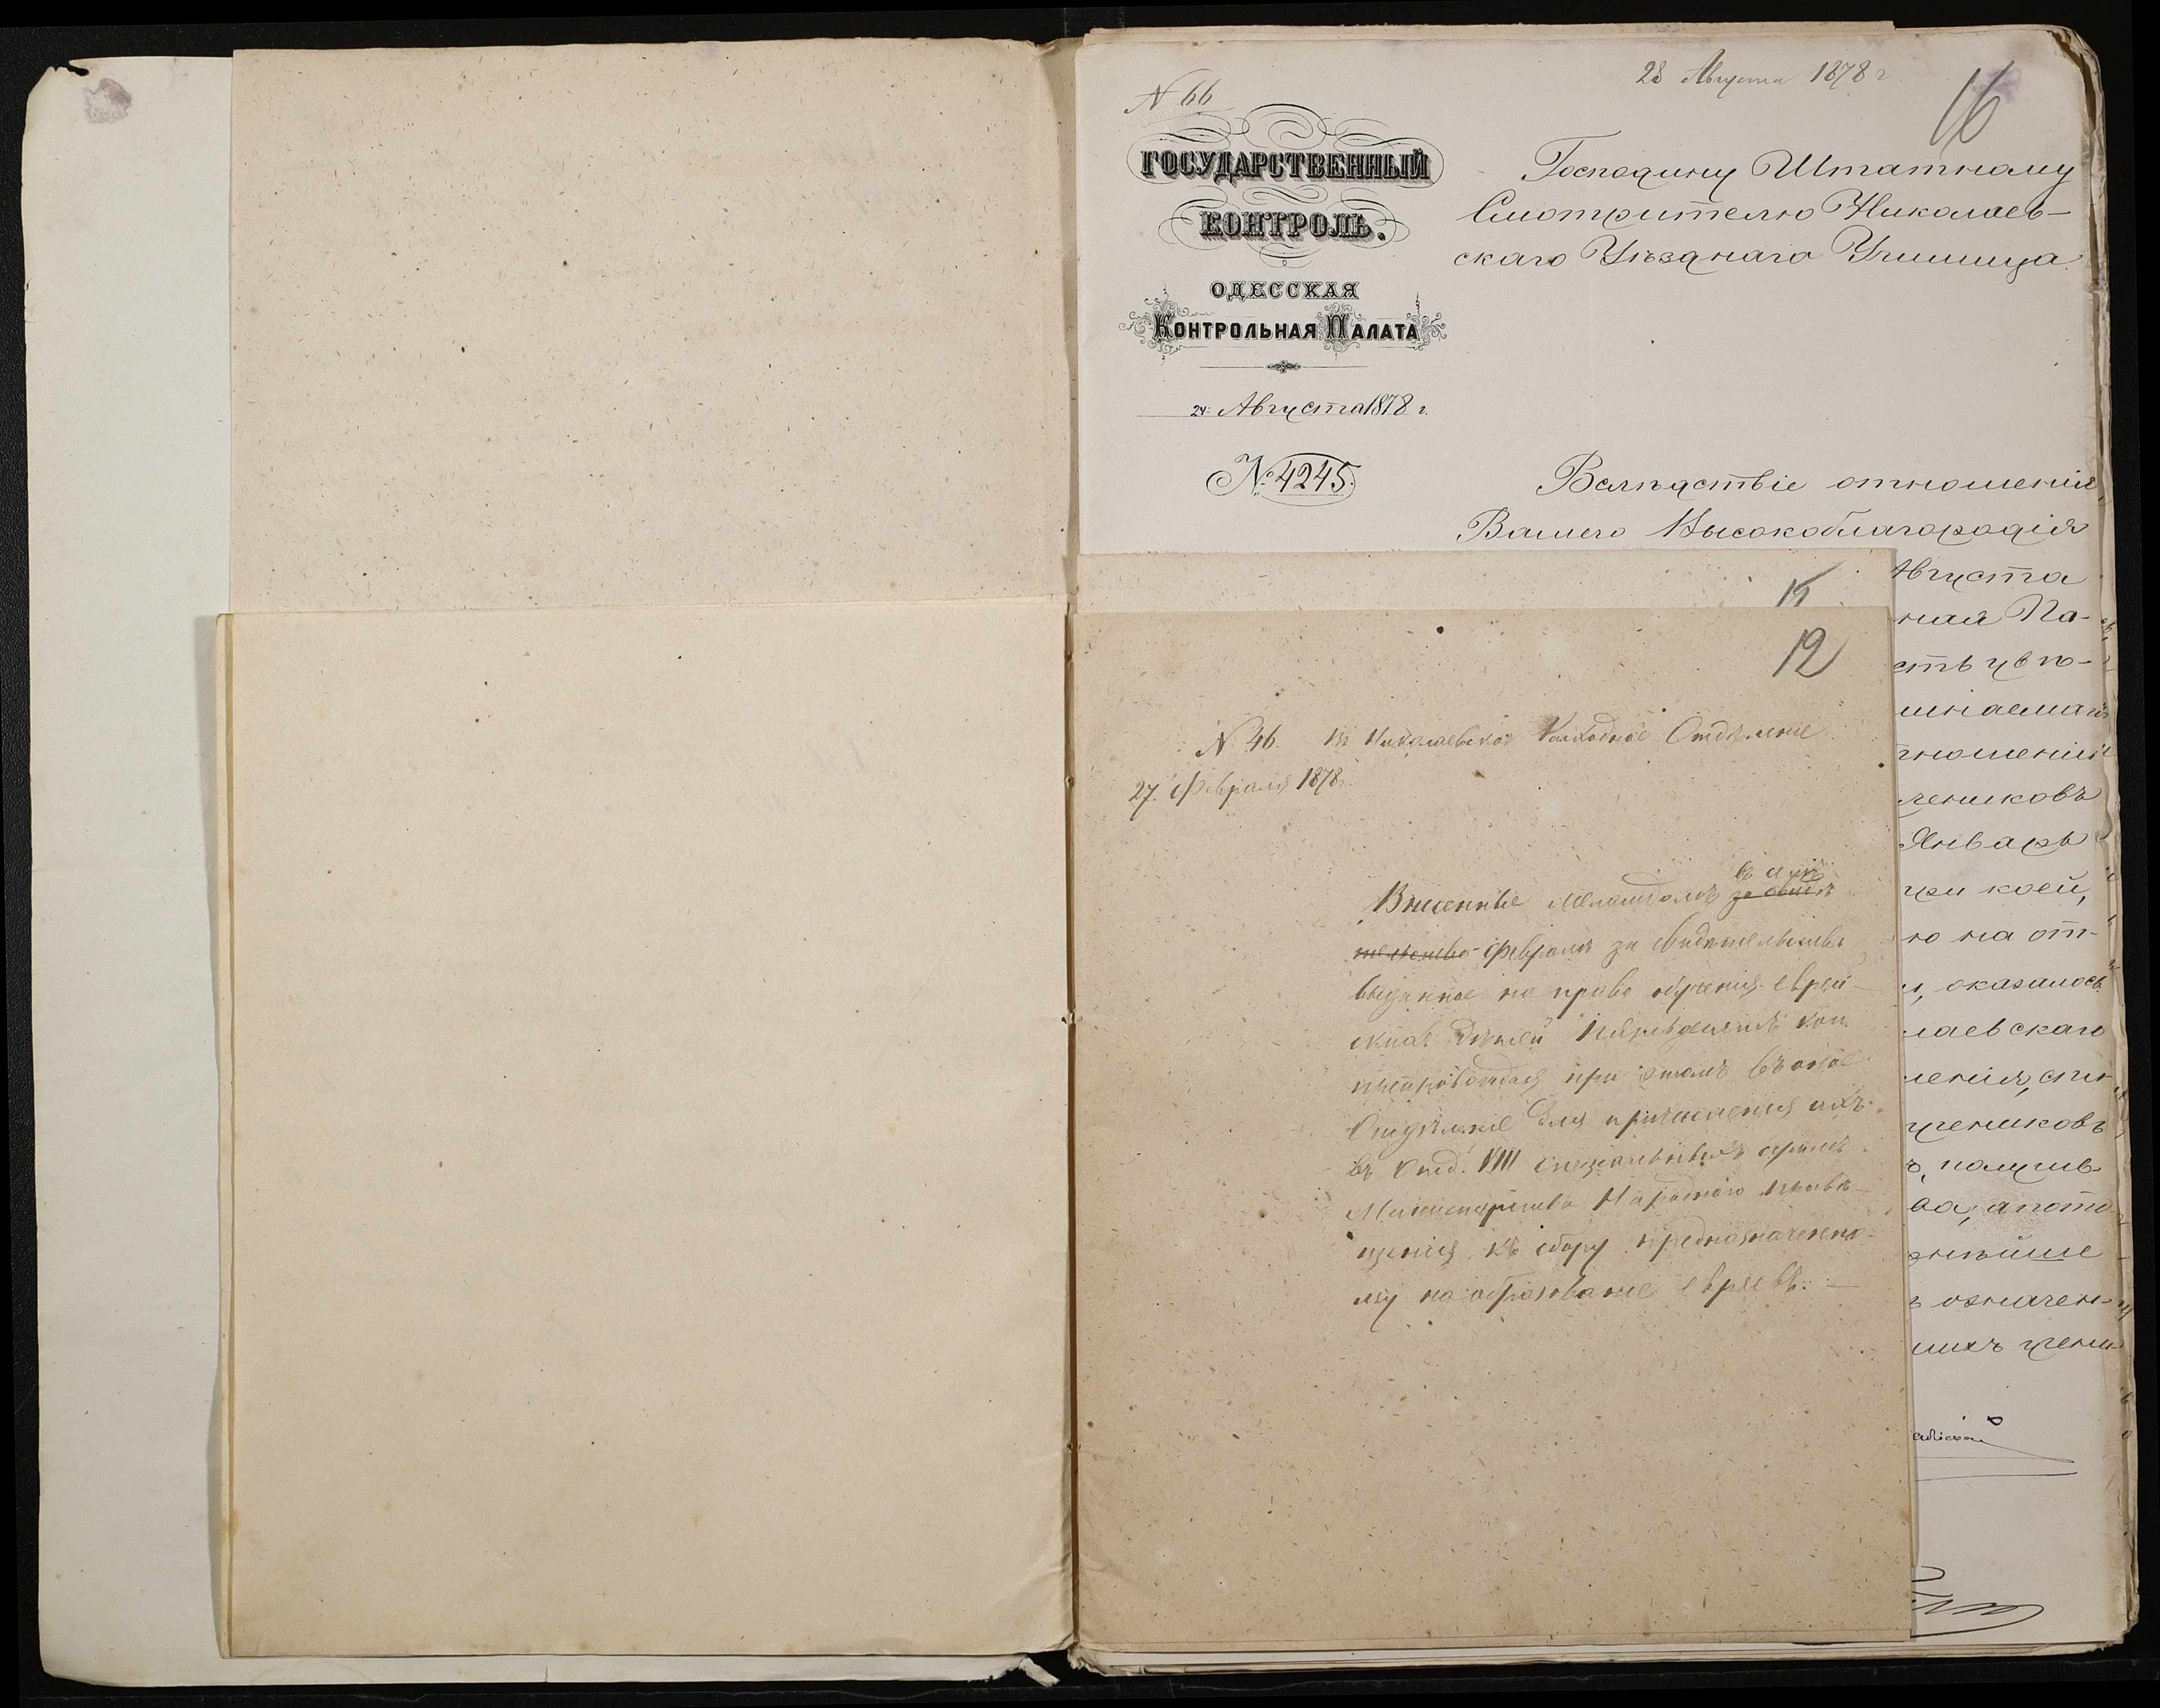 28 Августа 1878 г
16
N 66
ГОСУДАРСТВЕННЫЙ
КОНТРОЛЬ.
ОДЕССКАЯ
КОНТРОЛЬНАЯ ПАЛАТА
24 Августа 1878 г.
№ 4245.
Господину Штатному
Смотрителю Николаев-
скаго Уѣзднаго Училища
Вслѣдствіе отношенія
Вашего Высокоблагородія
Августа
ная Па-
сть увѣ-
тношенія
чениковъ
Январь
при коей,
но на от-
оказалось
лаевскаго
ленія,
учениковъ
получив-
а пото
нѣйше
означен-
шихъ учени
15
12
N 46. Въ Николаевское Казначейское Отдѣленіе
27. Февраля 1878
въ
за
Февраля за свидѣтельство
выданное на право обученія еврей-
скихъ дѣтей коп.
препровождая при этомъ въ оное
Отдѣленіе для причисленія ихъ
въ VIII спеціальныхъ суммъ
Министерства Народнаго Просвѣ-
щенія къ сбору предназначенно-
му на образованіе евреевъ. —